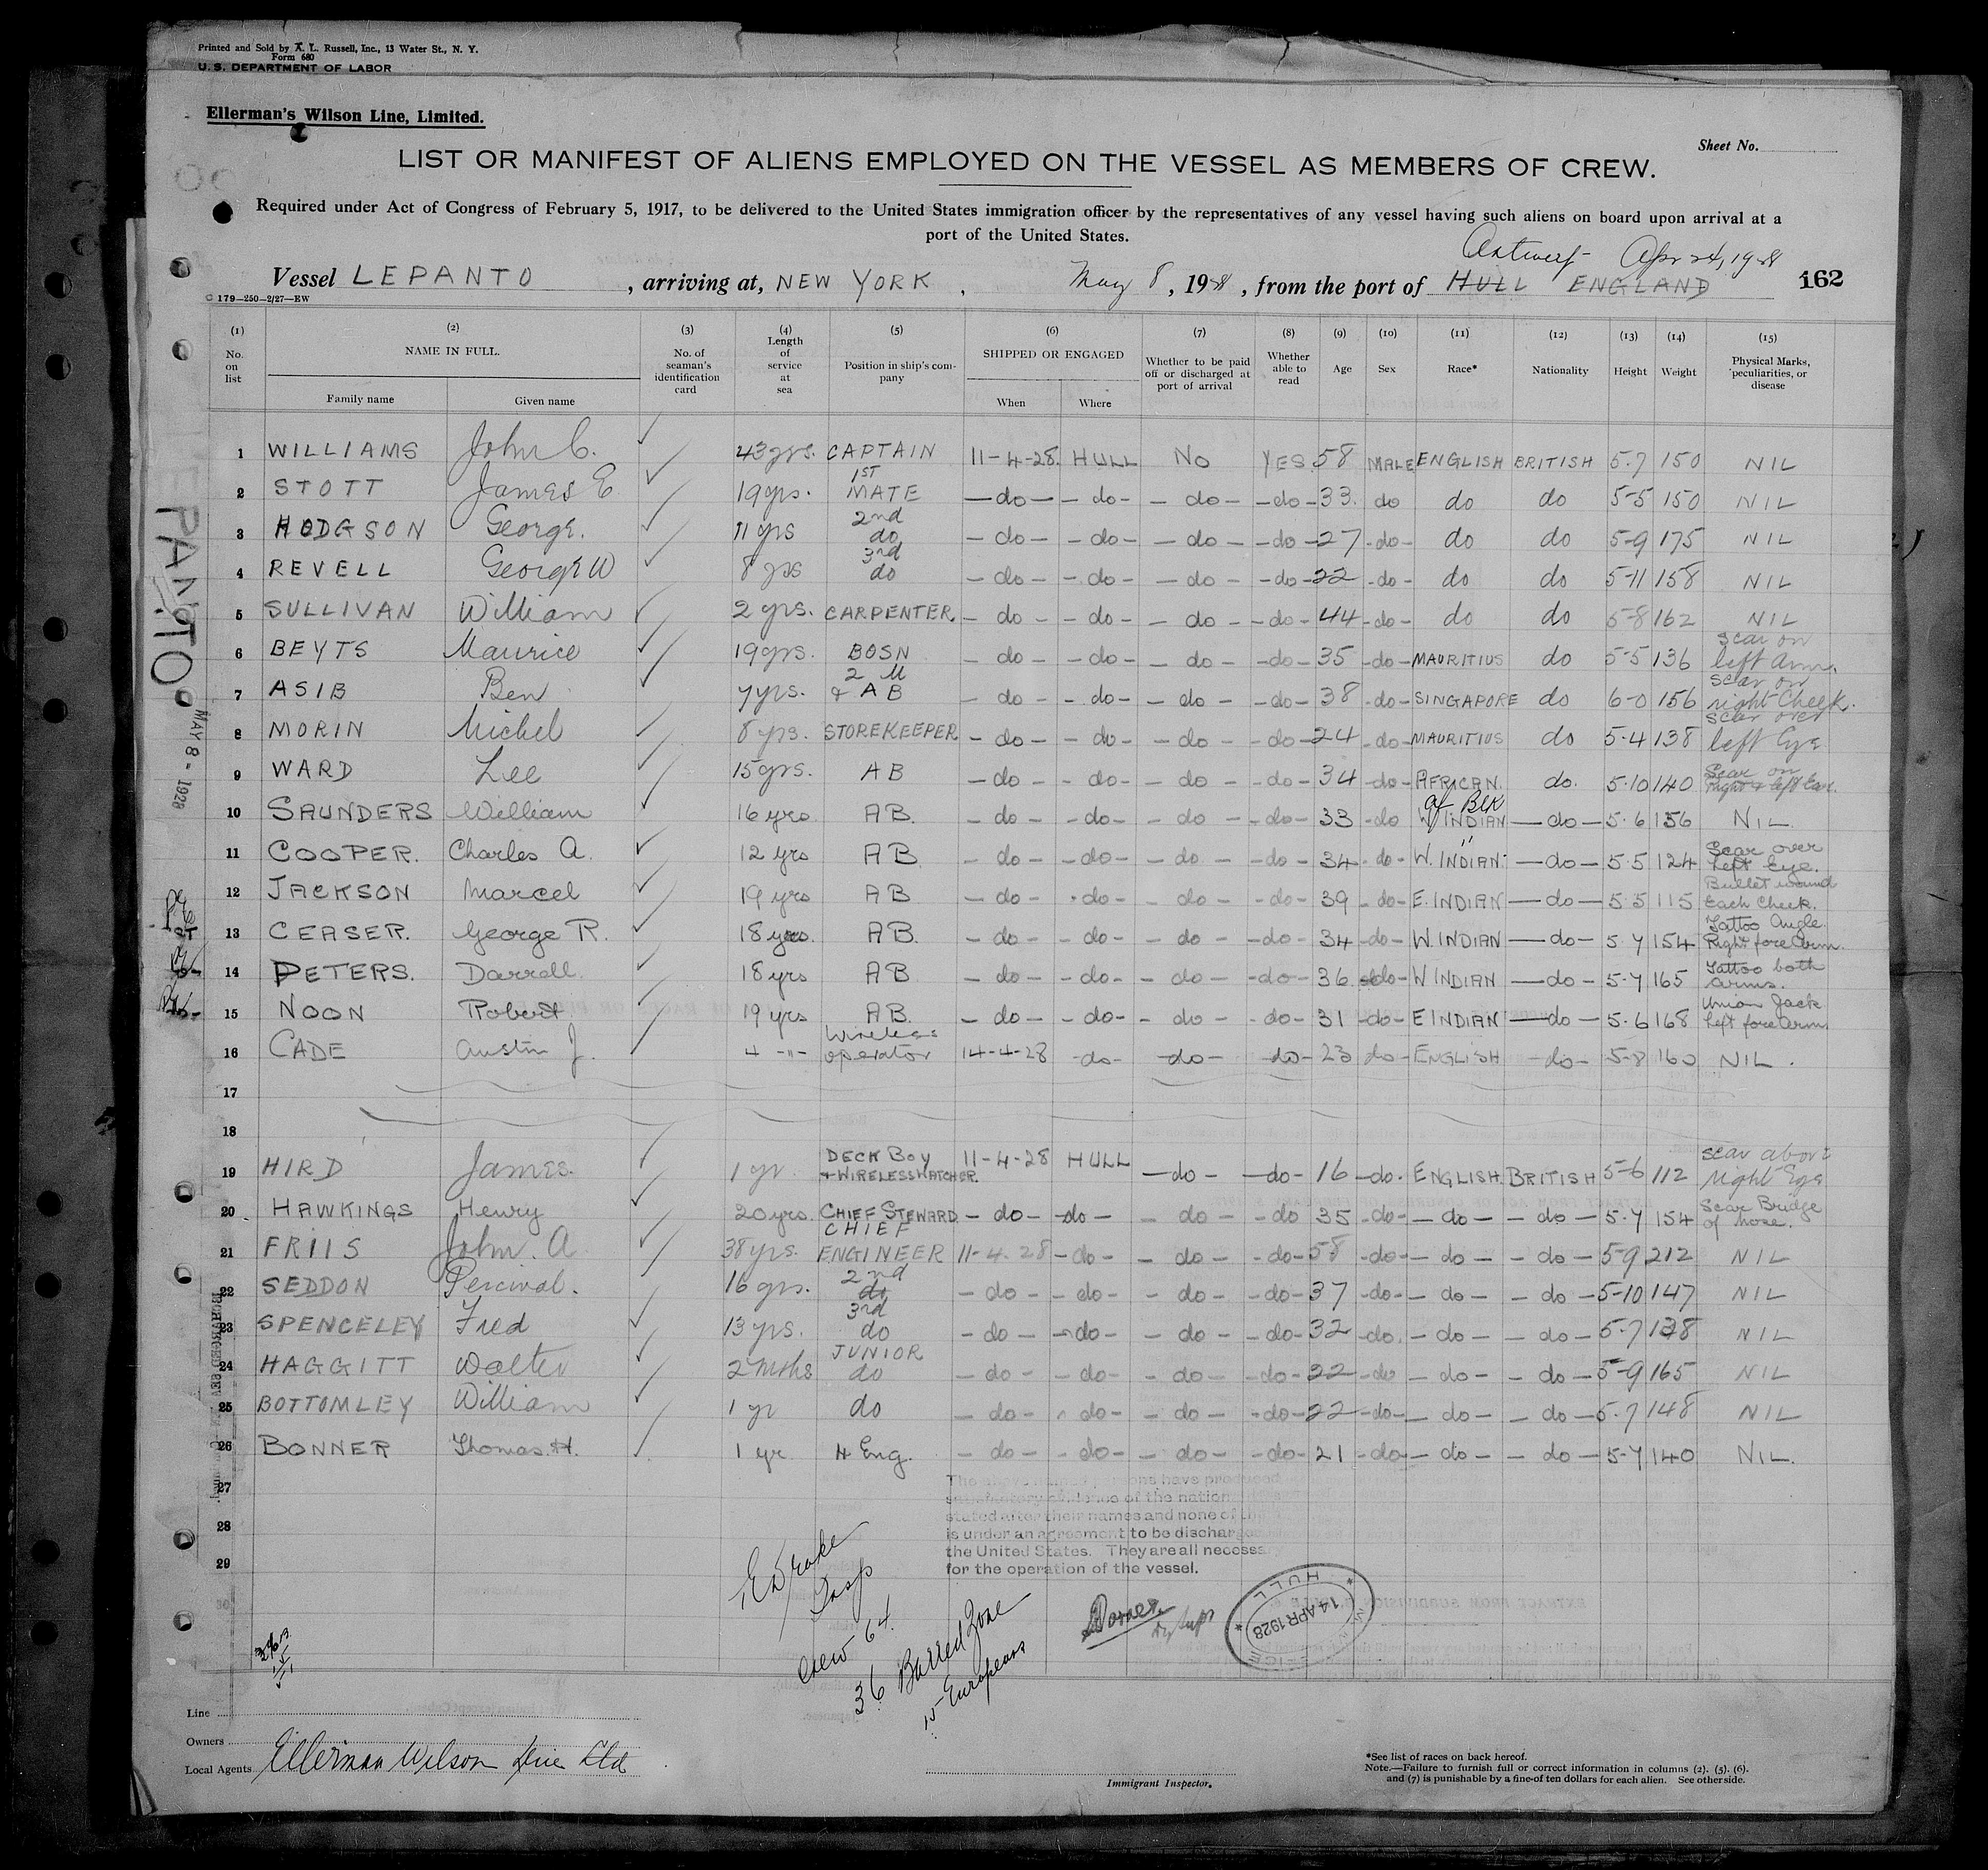 Printed and Sold by A. L. Russell, Inc., 13 Water St., N. Y.
Form 680
U. S. DEPARTMENT OF LABOR
Ellerman's Wilson Line, Limited.
Sheet No.
LIST OR MANIFEST OF ALIENS EMPLOYED ON THE VESSEL AS MEMBERS OF CREW.
Required under Act of Congress of February 5, 1917, to be delivered to the United States immigration officer by the representatives of any vessel having such aliens on board upon arrival at a
port of the United States.
Antwerp- Apr 24, 1928
Vessel LEPANTO, arriving at, NEW YORK, May 8, 1928, from the port of HULL ENGLAND 162
C 179-250-2/27-EW
(1) (2) (3) (4) (5) (6) (7) (8) (9) (10) (11) (12) (13) (14) (15)
No. on list NAME IN FULL. Family name Given name No. of seaman's identification card Length of service at sea Position in ship's company SHIPPED OR ENGAGED When Where Whether to be paid off or discharged at port of arrival Whether able to read Age Sex Race* Nationality Height Weight Physical Marks, peculiarities, or disease
1 WILLIAMS John C. 43 yrs. CAPTAIN 11-4-28. HULL NO YES 58 MALE ENGLISH BRITISH 5.7 150 NIL
2 STOTT James E 19 yrs. 1ST MATE -do- -do- -do- -do- 33. do do do 5-5 150 NIL
3 HODGSON George. 11 yrs 2nd do -do- -do- -do- -do- 27 -do- do do 5-9 175 NIL
4 REVELL George W 8 yrs 3rd do -do- -do- -do- -do- 22 -do- do do 5-11 158 NIL
5 SULLIVAN William 2 yrs. CARPENTER -do- -do- -do- -do- 44 -do- do do 5-8 162 NIL
6 BEYTS Maurice 19 yrs. BOSN -do- -do- -do- -do- 35 -do- MAURITIUS do 5-5 136 scar on left arm.
7 ASIB Ben 7 yrs. 2 M + AB -do- -do- -do- -do- 38 -do- SINGAPORE do 6-0 156 scar on right Cheek.
8 MORIN Michel 8 yrs. STOREKEEPER -do- -do- -do- -do- 24 -do- MAURITIUS do 5.4 138 scar over left Eye
9 WARD Lee 15 yrs. AB -do- -do- -do- -do- 34 -do- AFRICAN. do. 5.10 140 Scar on right & left Ear.
10 SAUNDERS William 16 yrs AB. -do- -do- -do- -do- 33 -do Af Blk W INDIAN -do- 5.6 156 NIL.
11 COOPER. Charles A. 12 yrs AB. -do- -do- -do- -do- 34 -do- " W. INDIAN. -do- 5.5 124 Scar over Left Eye.
12 JACKSON Marcel 19 yrs AB -do- -do- -do- -do- 39 -do- E. INDIAN -do- 5.5 115 Bullet wound Each Cheek.
13 CEASER. George R. 18 yrs. AB. -do- -do- -do- -do- 34 -do- W. INDIAN -do- 5.7 154 Tattoo Angle. Right fore Arm.
14 PETERS. Darrell. 18 yrs AB -do- -do- -do- -do- 36 -do- W INDIAN -do- 5.7 165 Tattoo both arms.
15 NOON Robert 19 yrs AB. -do- -do- -do- -do- 31 -do- E INDIAN -do- 5.6 168 Union Jack Left fore Arm.
16 CADE Austin J. 4 -"- Wireless operator 14-4-28 -do- -do- do- 23 do- ENGLISH -do- 5-8 160 NIL.
17
18
19 HIRD James. 1 yr. DECK BOY + WIRELESS WATCHER. 11-4-28 HULL -do- -do- 16 -do. ENGLISH. BRITISH 5-6 112 scar above right Eye
20 HAWKINGS Henry 20 yrs. CHIEF STEWARD -do- -do- -do- -do 35 -do- -do- -do- 5.7 154 Scar Bridge of nose.
21 FRIIS John. A 38 yrs. CHIEF ENGINEER 11-4.28 -do- -do- -do- 58 -do- -do- -do- 5-9 212 NIL
22 SEDDON Percival. 16 yrs. 2nd do -do- -do- -do- -do- 37 -do- -do- -do- 5-10 147 NIL
23 SPENCELEY Fred 13 yrs. 3rd do -do- -do- -do- -do- 32 -do. -do- -do- 5.7 138 NIL
24 HAGGITT Walter 2 Mths JUNIOR do -do- -do- -do- -do- 22 -do -do- -do- 5-9 165 NIL
25 BOTTOMLEY William 1 yr do -do- -do- -do- -do- 22 -do- -do- -do- 5.7 148 NIL
26 BONNER Thomas. H. 1 yr 4 Eng. -do- -do- -do- -do- 21 -do- -do- -do- 5-7 140 NIL.
27
28
29
30
The above named persons have produced
satisfactory evidence of the nation
stated after their names and none of the
is under an agreement to be discharge
the United States. They are all necess
for the operation of the vessel.
E Drake
Insp
Crew 64.
36 Barred Zone
15 Europeans
HULL
14 APR 1928
LEPANTO
MAY 8 - 1928
Line
Owners
Local Agents Ellerman Wilson Line Ltd
Immigrant Inspector.
*See list of races on back hereof.
Note.—Failure to furnish full or correct information in columns (2). (5). (6).
and (7) is punishable by a fine of ten dollars for each alien. See other side.